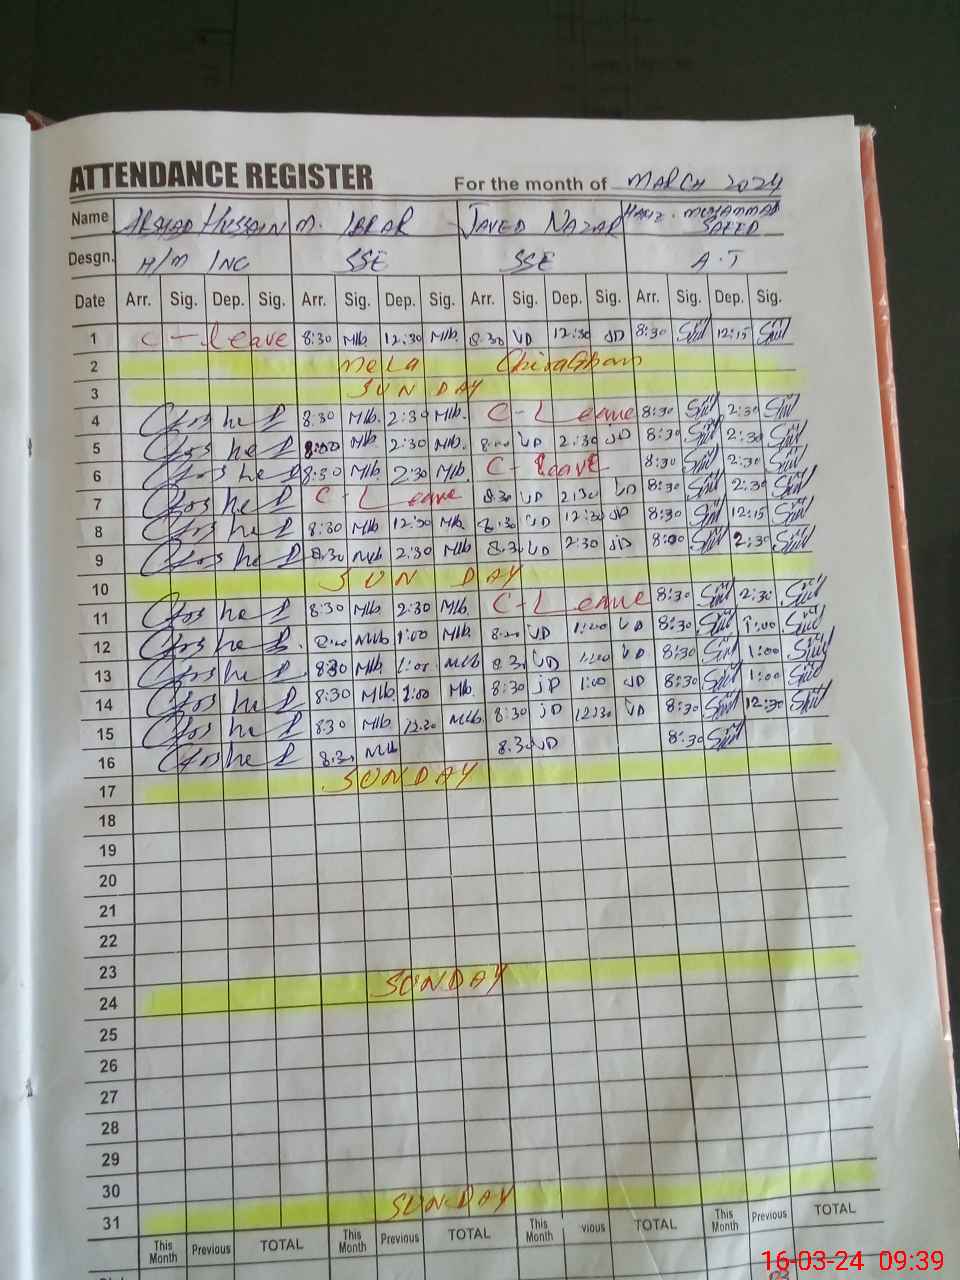 ATTENDANCE REGISTER For the month of MARCH 2024
Name ARSHAD HUSSAIN M. IBRAR JAVED NAZAR HAFIZ. MUHAMMAD SAEED
Desgn. H/M INC SSE SSE A.T
Date Arr. Sig. Dep. Sig. Arr. Sig. Dep. Sig. Arr. Sig. Dep. Sig. Arr. Sig. Dep. Sig.
1 C-Leave 8:30 MIb 12:30 MIb. 8:30 JD 12:30 JD 8:30 12:15
2 Mela Chiraghan
3 SUNDAY
4 8:30 MIb. 2:30 MIb. C-Leave 8:30 2:30
5 8:00 MIb 2:30 MIb. 8:00 JD 2:30 JD 8:30 2:30
6 8:30 MIb 2:30 MIb. C-Leave 8:30 2:30
7 C-Leave 8:30 JD 2:30 JD 8:30 2:30
8 8:30 MIb 12:30 MIb 8:30 JD 12:30 JD 8:30 12:15
9 8:30 MIb 2:30 MIb 8:30 JD 2:30 JD 8:00 2:30
10 SUNDAY
11 8:30 MIb 2:30 MIb. C-Leave 8:30 2:30
12 8:00 MIb 1:00 MIb. 8:00 JD 1:00 JD 8:30 1:00
13 8:30 MIb. 1:00 MIb 8:30 JD 1:00 JD 8:30 1:00
14 8:30 MIb. 1:00 MIb. 8:30 JD 1:00 JD 8:30 1:00
15 8:30 MIb. 12:30 MIb. 8:30 JD 12:30 JD 8:30 12:30
16 8:30 MIb 8:30 JD 8:30
17 SUNDAY
18
19
20
21
22
23
24 SUNDAY
25
26
27
28
29
30
31 SUNDAY
This Month Previous TOTAL This Month Previous TOTAL This Month vious TOTAL This Month Previous TOTAL
16-03-24 09:39